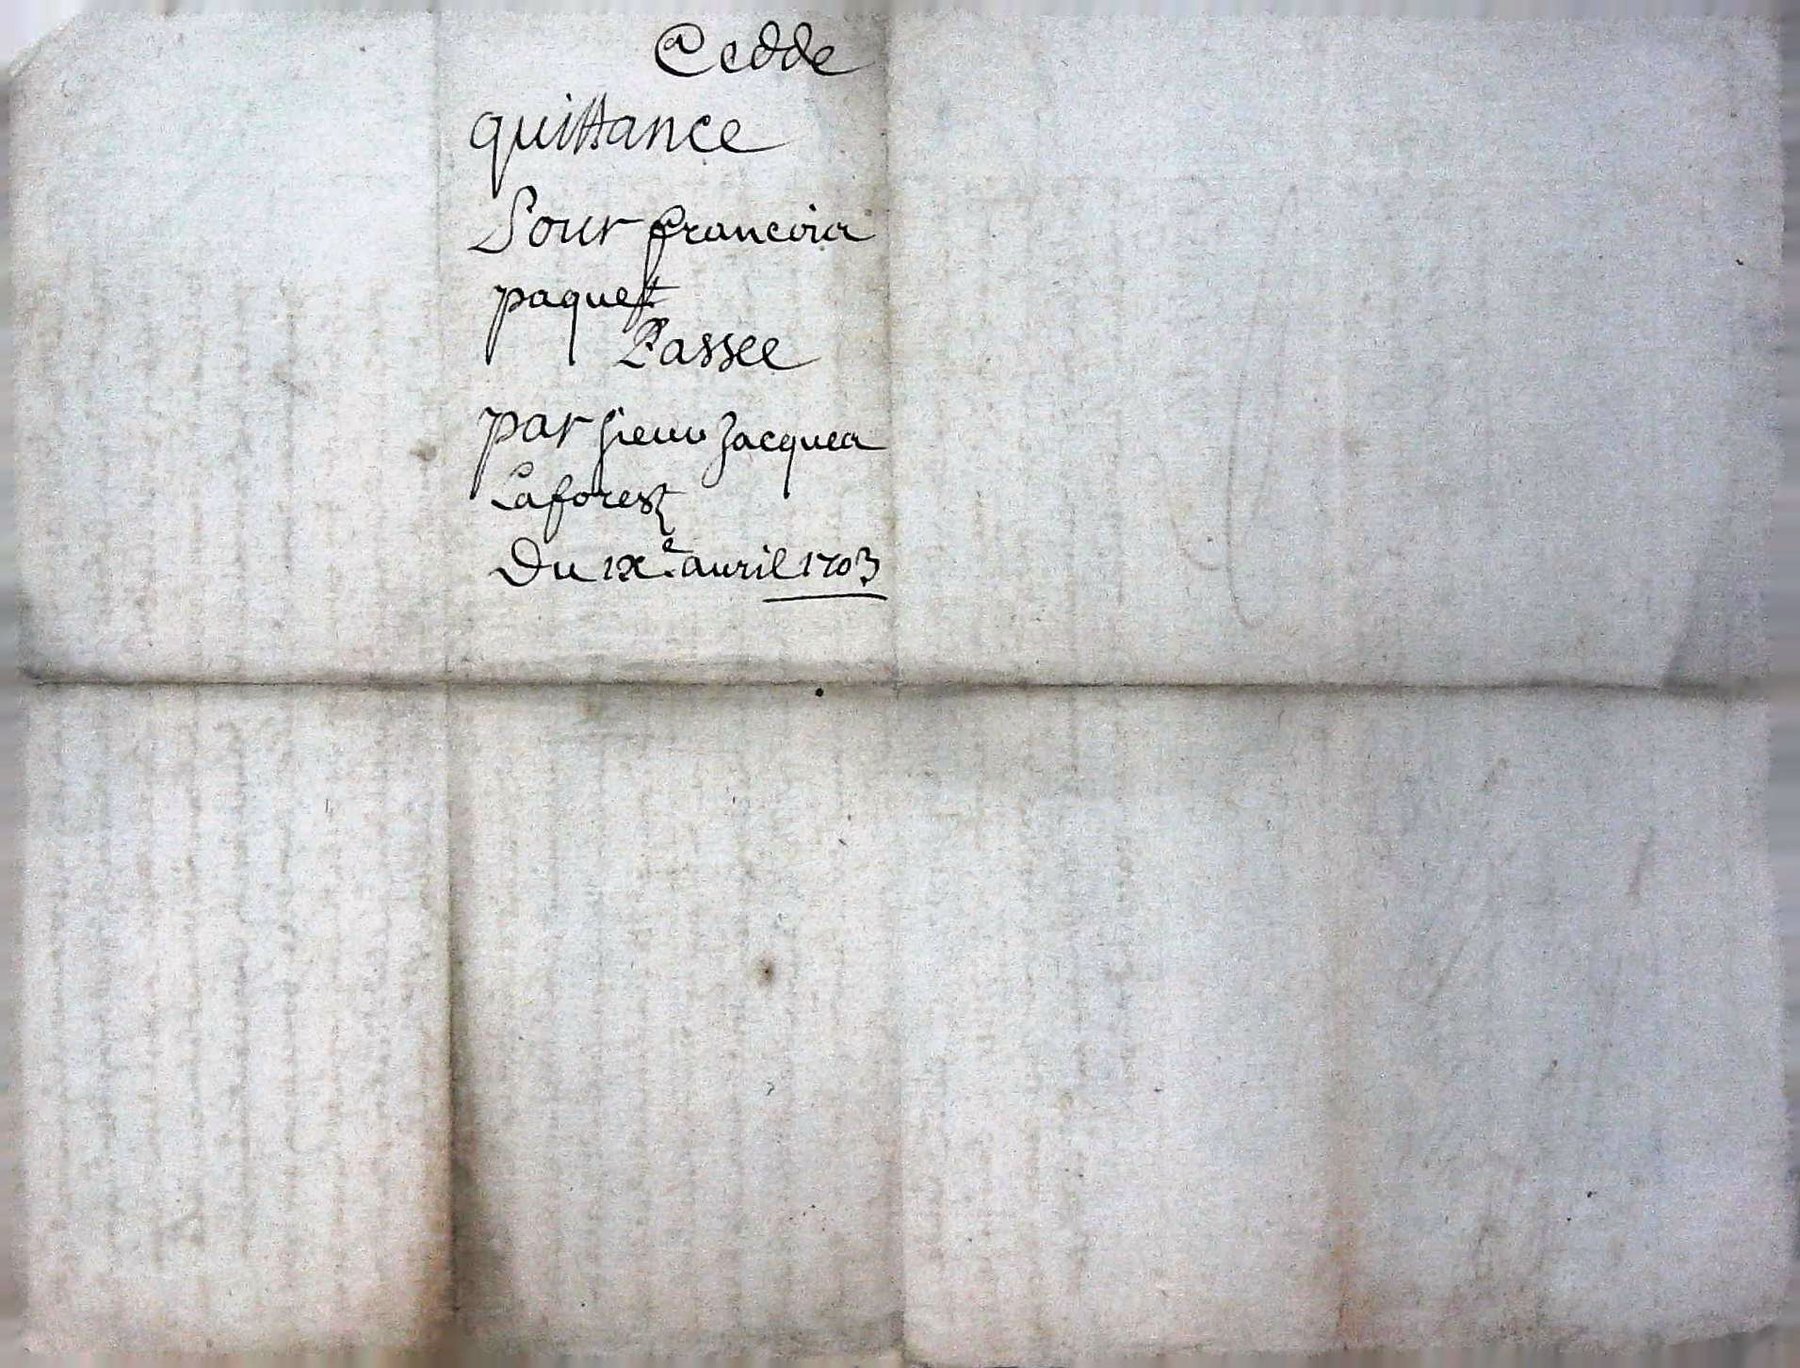 Acdde
quittance
Pour francois
paquet
Passee
par sieur Jacques
Laforest
Du ixe auril 1703